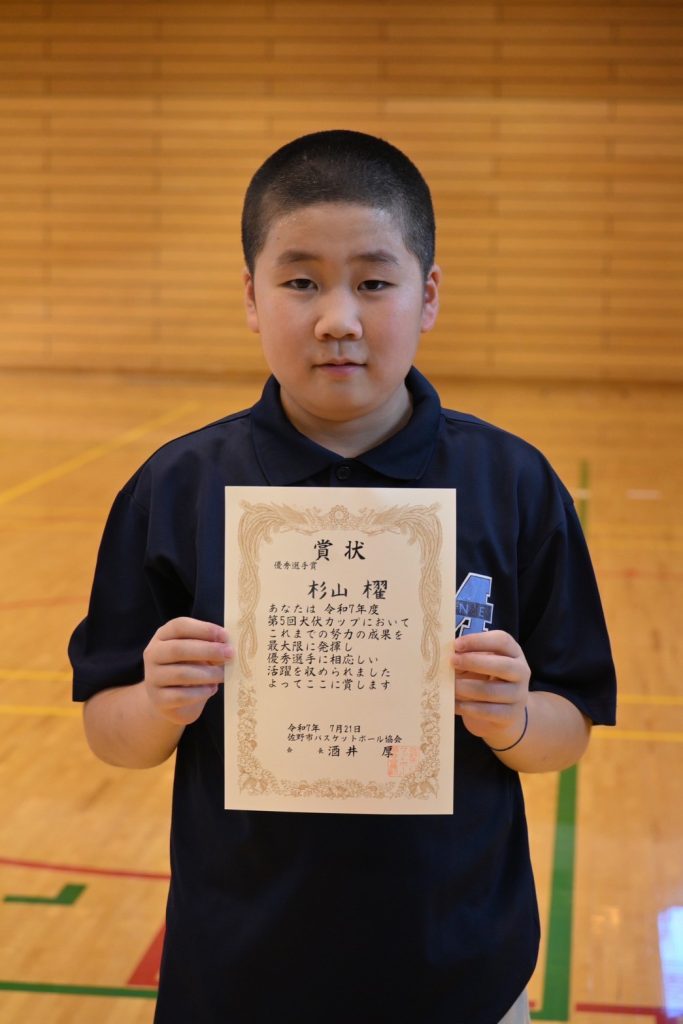 賞状
優秀選手賞
杉山 櫂
あなたは 令和7年度
第5回犬伏カップにおいて
これまでの努力の成果を
最大限に発揮し
優秀選手に相応しい
活躍を収められました
よってここに賞します
令和7年 7月21日
佐野市バスケットボール協会
会 長 酒井 厚
NE